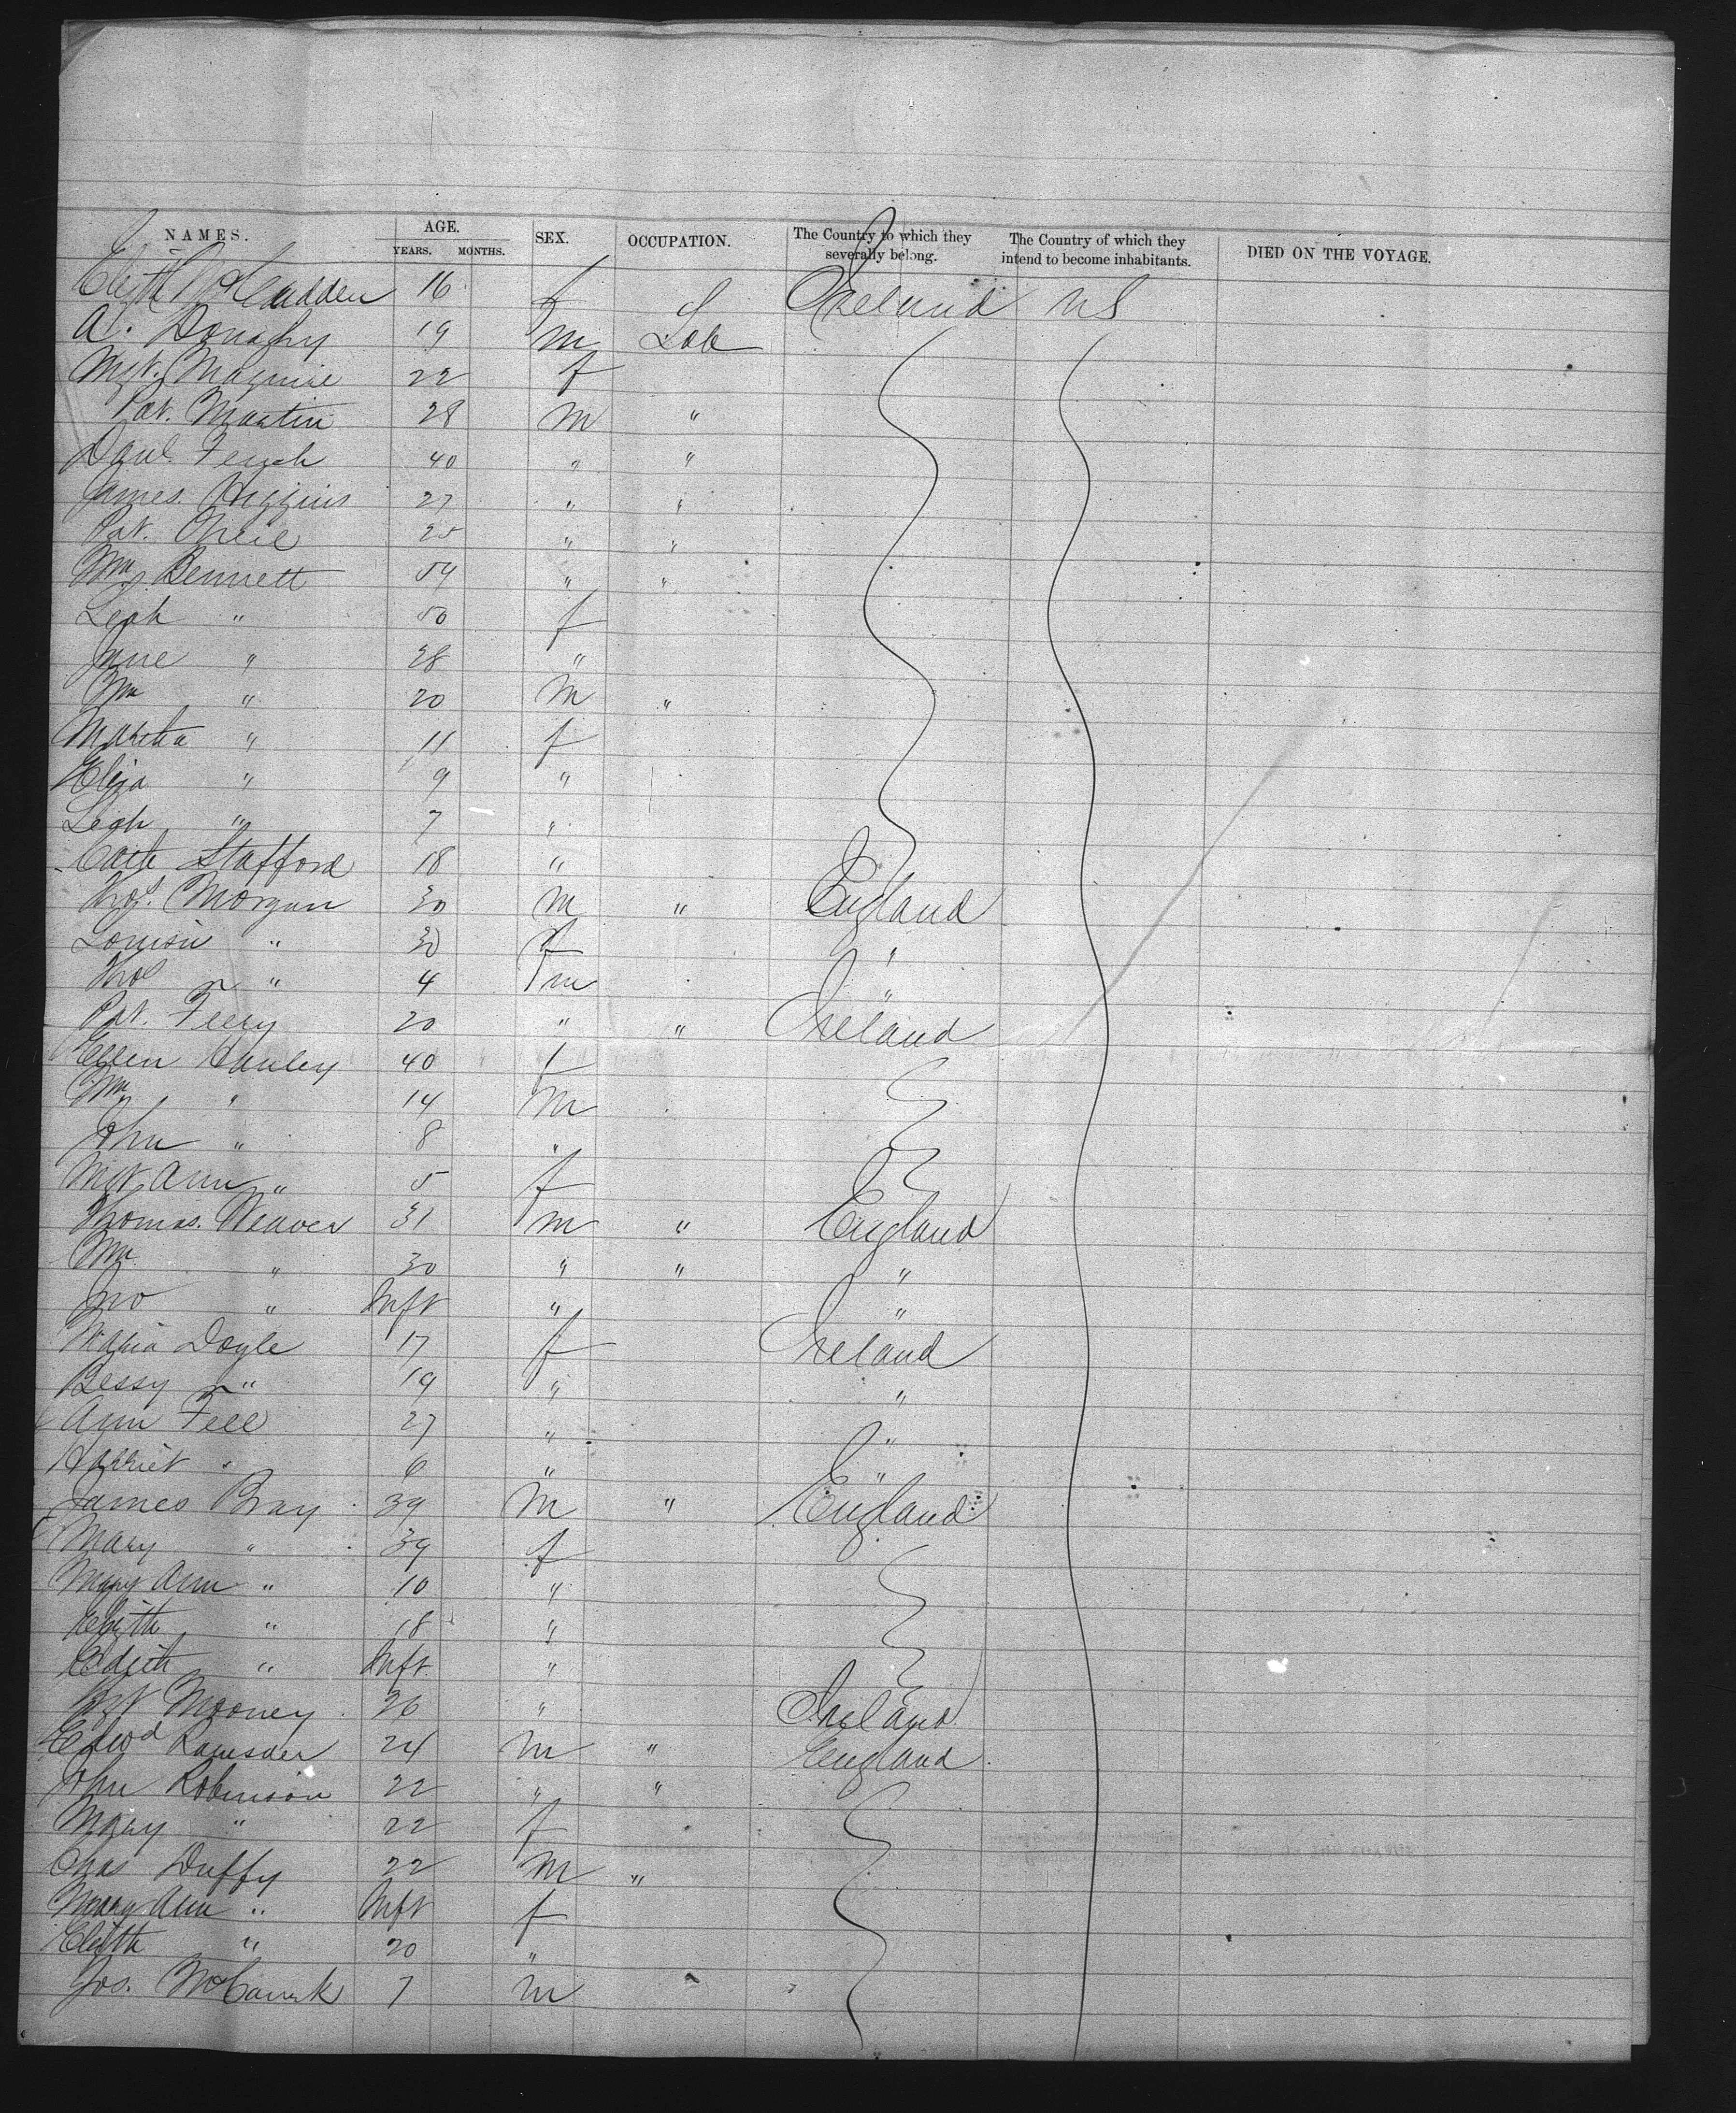 NAMES. AGE. SEX. OCCUPATION. The Country to which they severally belong. The Country of which they intend to become inhabitants. DIED ON THE VOYAGE.
YEARS. MONTHS.
Elizth McCudden 16 f Ireland US
A. Donaghy 19 m Lab
Mgt. Maguire 22 f
Pat. Martin 28 m "
Danl. 40 " "
James Higgins 27 " "
Pat. Oneil 25 " "
Wm. Bennett 54 " "
Leah " 50 f
Jane " 28 "
Wm " 20 m "
Martha " 11 f
Eliza " 9 "
Leah " 7 "
Cath Stafford 18 "
Thos. Morgan 30 m " England
Louisa " 30 f "
Thos " 4 m "
Pat. Feery 20 " " Ireland
Ellen Cauley 40 f
Wm " 14 m
John " 8 "
Mgt. Ann " 5 f
Thomas. Weaver 31 m " England
Wm. " 30 " " "
Jno " Inft " "
Maria Doyle 17 f Ireland
Bessy " 19 " "
Ann Fell 27 " "
Harriet " 6 " "
James Bray 39 m " England
Mary " 39 f
Mary Ann " 10 "
Elizth " 18 "
Edith " Inft. "
Mooney 26 " Ireland
Edwd Ramsden 24 m " England
John Robinson 22 " "
Mary " 22 f
Chas Duffy 22 m "
Mary Ann " Inft f
Elizth " 20 "
Jos. 7 m